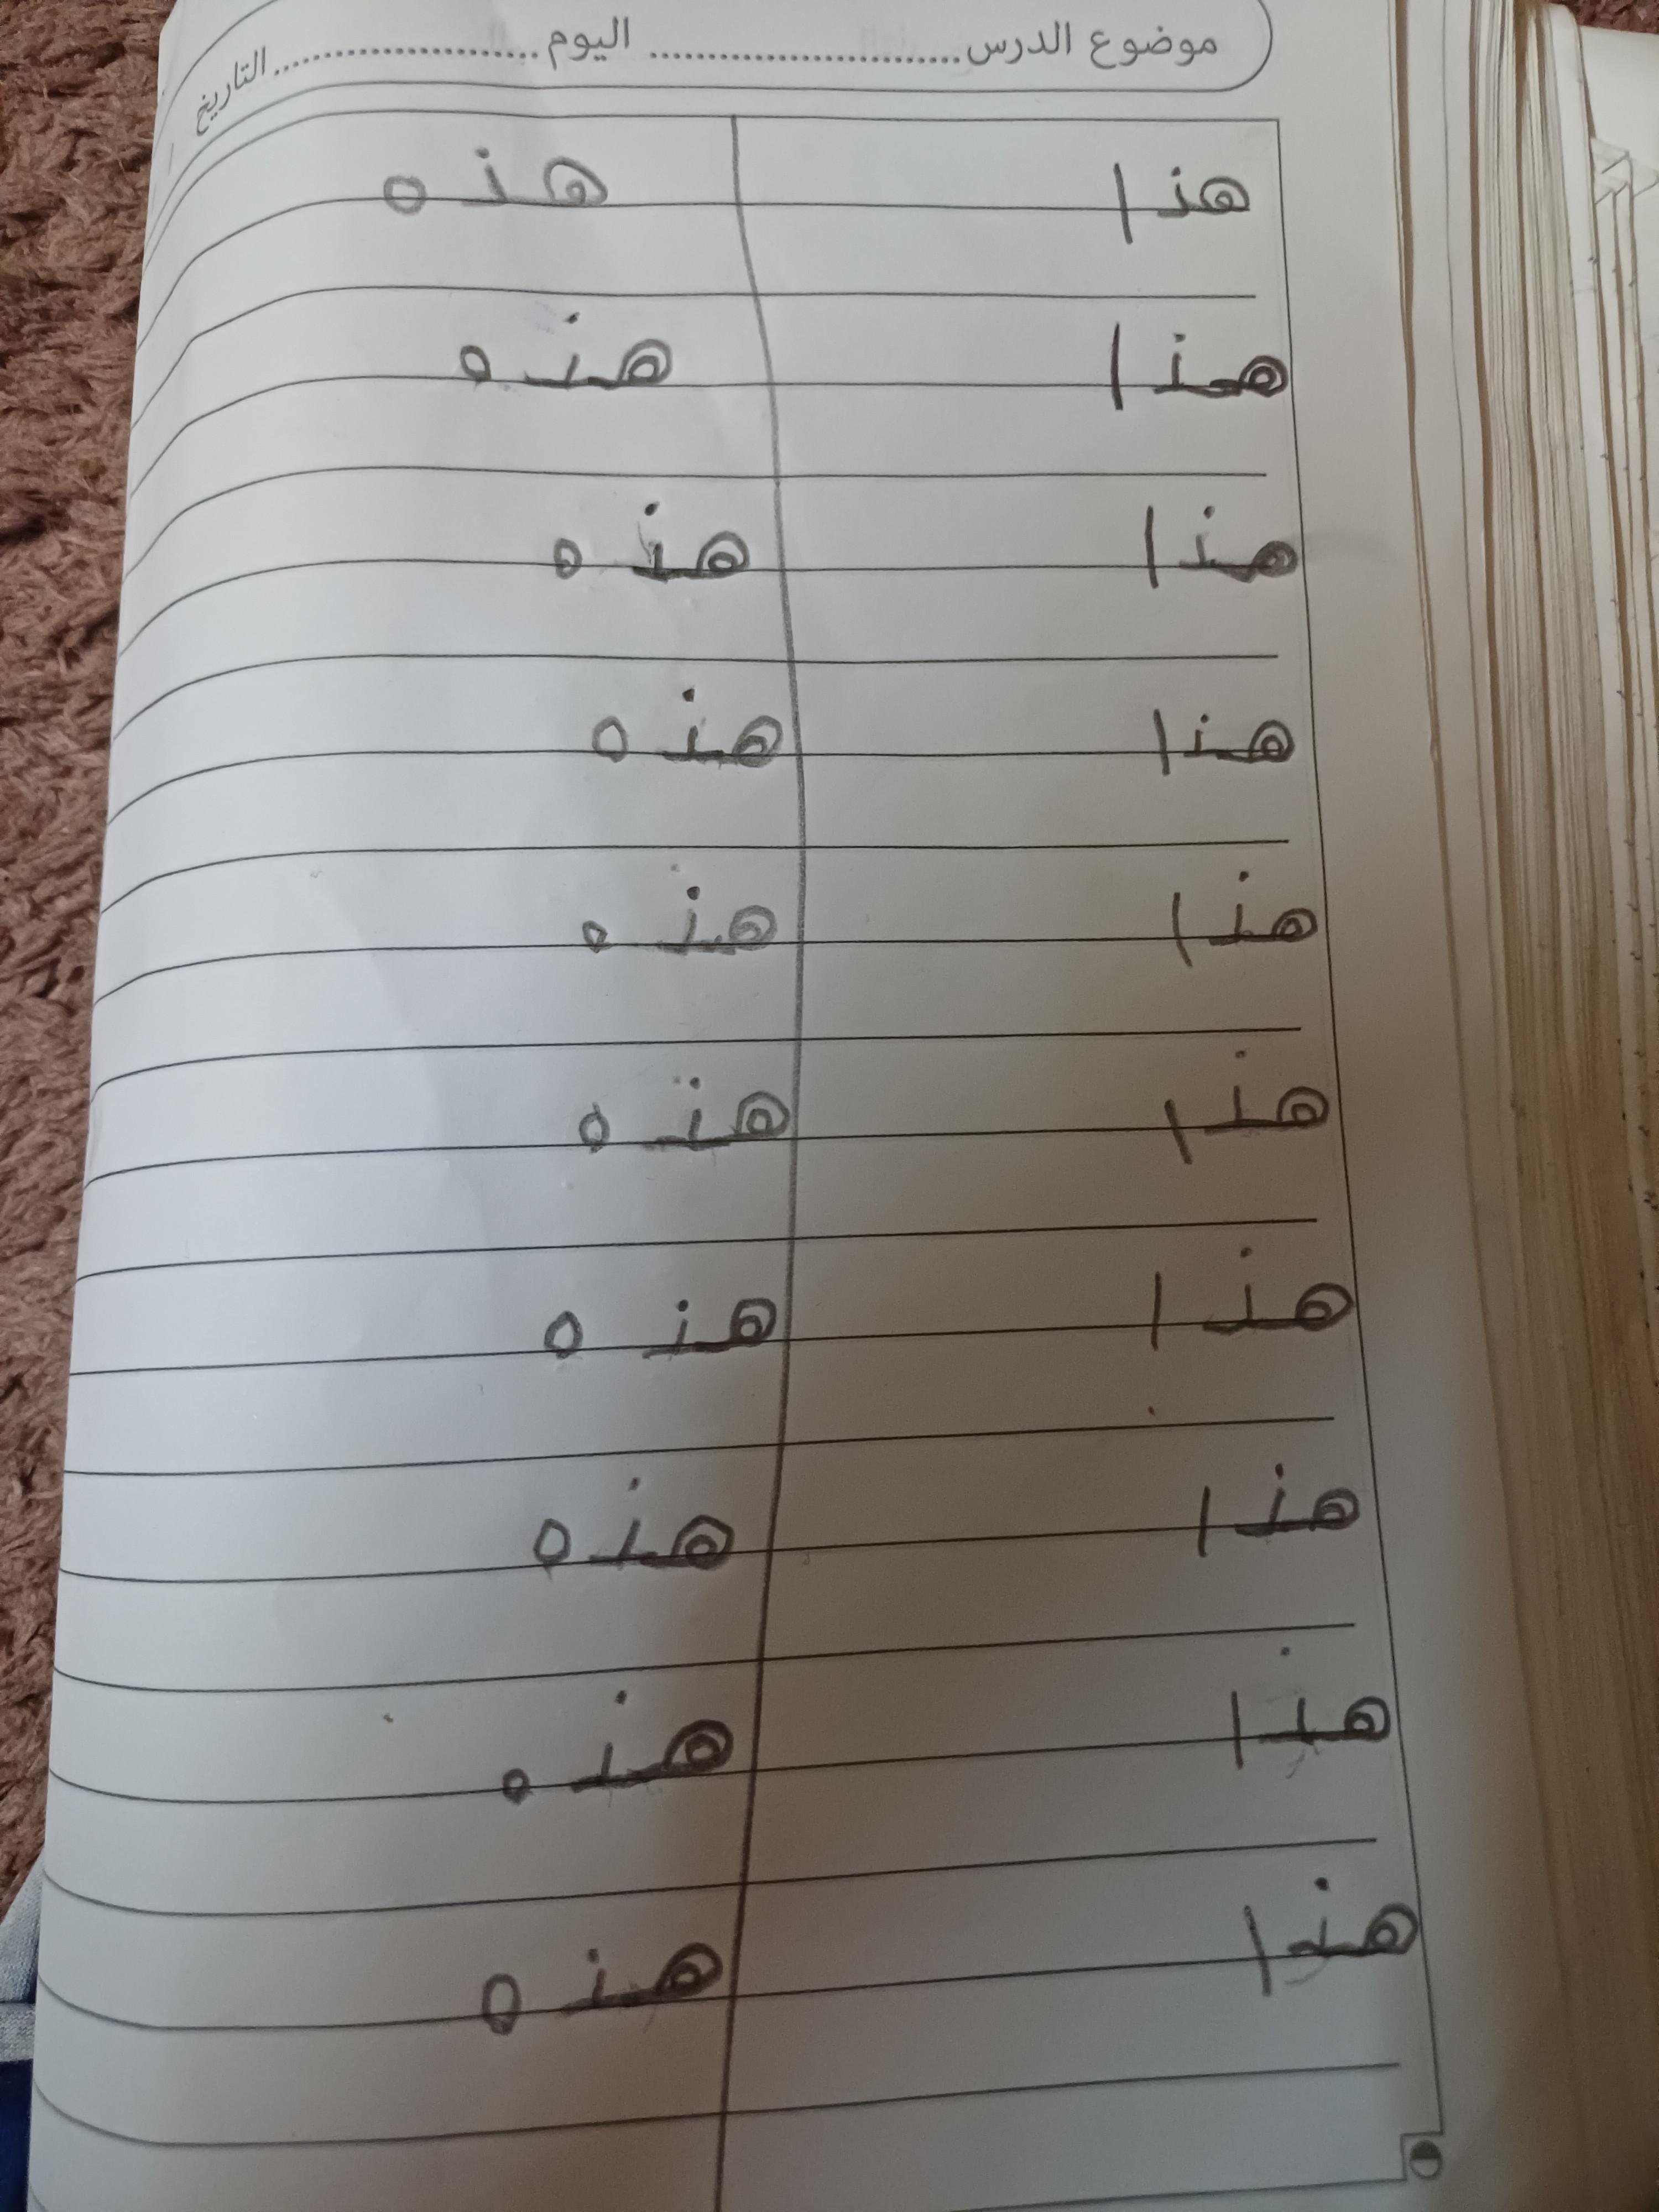 موضوع الدرس.............................. اليوم.......................... التاريخ
هذا هذه
هذا هذه
هذا هذه
هذا هذه
هذا هذه
هذا هذه
هذا هذه
هذا هذه
هذا هذه
هذا هذه